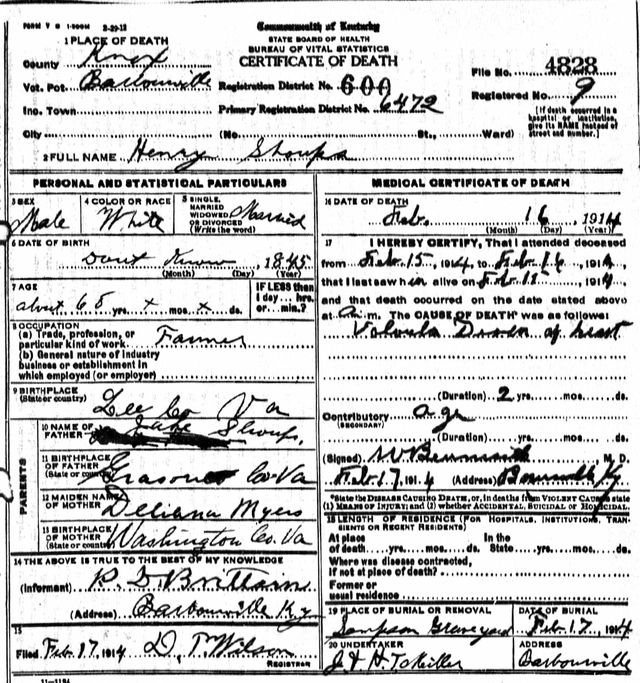 FORM V S 1-500M 2-29-12
Commonwealth of Kentucky
STATE BOARD OF HEALTH
BUREAU OF VITAL STATISTICS
CERTIFICATE OF DEATH
1 PLACE OF DEATH
County Knox
Vot. Pct. Barbourville
Inc. Town
City
Registration District No. 600
Primary Registration District No. 6472
(No. St., Ward)
File No. 4828
Registered No. 9
[If death occurred in a hospital or institution, give its NAME instead of street and number.]
2 FULL NAME Henry Shoups
PERSONAL AND STATISTICAL PARTICULARS
3 SEX Male
4 COLOR OR RACE White
5 SINGLE, MARRIED WIDOWED OR DIVORCED (Write the word) Married
6 DATE OF BIRTH
Dont Know 1845
(Month) (Day) (Year)
7 AGE
about 68 yrs. x mos. x ds.
IF LESS than 1 day... hrs. or... min.?
8 OCCUPATION
(a) Trade, profession, or particular kind of work. Farmer
(b) General nature of industry business or establishment in which employed (or employer)
9 BIRTHPLACE (State or country)
Lee Co Va
PARENTS
10 NAME OF FATHER Jake Shoups.
11 BIRTHPLACE OF FATHER (State or country) Co Va
12 MAIDEN NAME OF MOTHER Myers
13 BIRTHPLACE OF MOTHER (State or country) Washington Co. Va
14 THE ABOVE IS TRUE TO THE BEST OF MY KNOWLEDGE
(Informant) Brittain
(Address) Barbourville Ky
15
Filed Feb 17, 1914 D. T. Wilson
REGISTRAR
11-1184
MEDICAL CERTIFICATE OF DEATH
16 DATE OF DEATH
Feb. 16 1914
(Month) (Day) (Year)
17 I HEREBY CERTIFY, That I attended deceased
from Feb 15, 1914, to Feb 16, 1914,
that I last saw him alive on Feb 15, 1914,
and that death occurred on the date stated above
at m. The CAUSE OF DEATH* was as follows:
of heart
(Duration) 2 yrs. mos. ds.
Contributory age
(SECONDARY)
(Duration) yrs. mos. ds.
(Signed) M. D.
Feb 17, 1914 (Address) Ky
*State the DISEASE CAUSING DEATH, or, in deaths from VIOLENT CAUSES state (1) MEANS OF INJURY; and (2) whether ACCIDENTAL, SUICIDAL or HOMICIDAL.
18 LENGTH OF RESIDENCE (FOR HOSPITALS, INSTITUTIONS, TRANSIENTS OR RECENT RESIDENTS)
At place of death yrs. mos. ds. In the State yrs. mos. ds.
Where was disease contracted, if not at place of death?
Former or usual residence
19 PLACE OF BURIAL OR REMOVAL Sampson Graveyard
DATE OF BURIAL Feb 17, 1914
20 UNDERTAKER
ADDRESS Barbourville